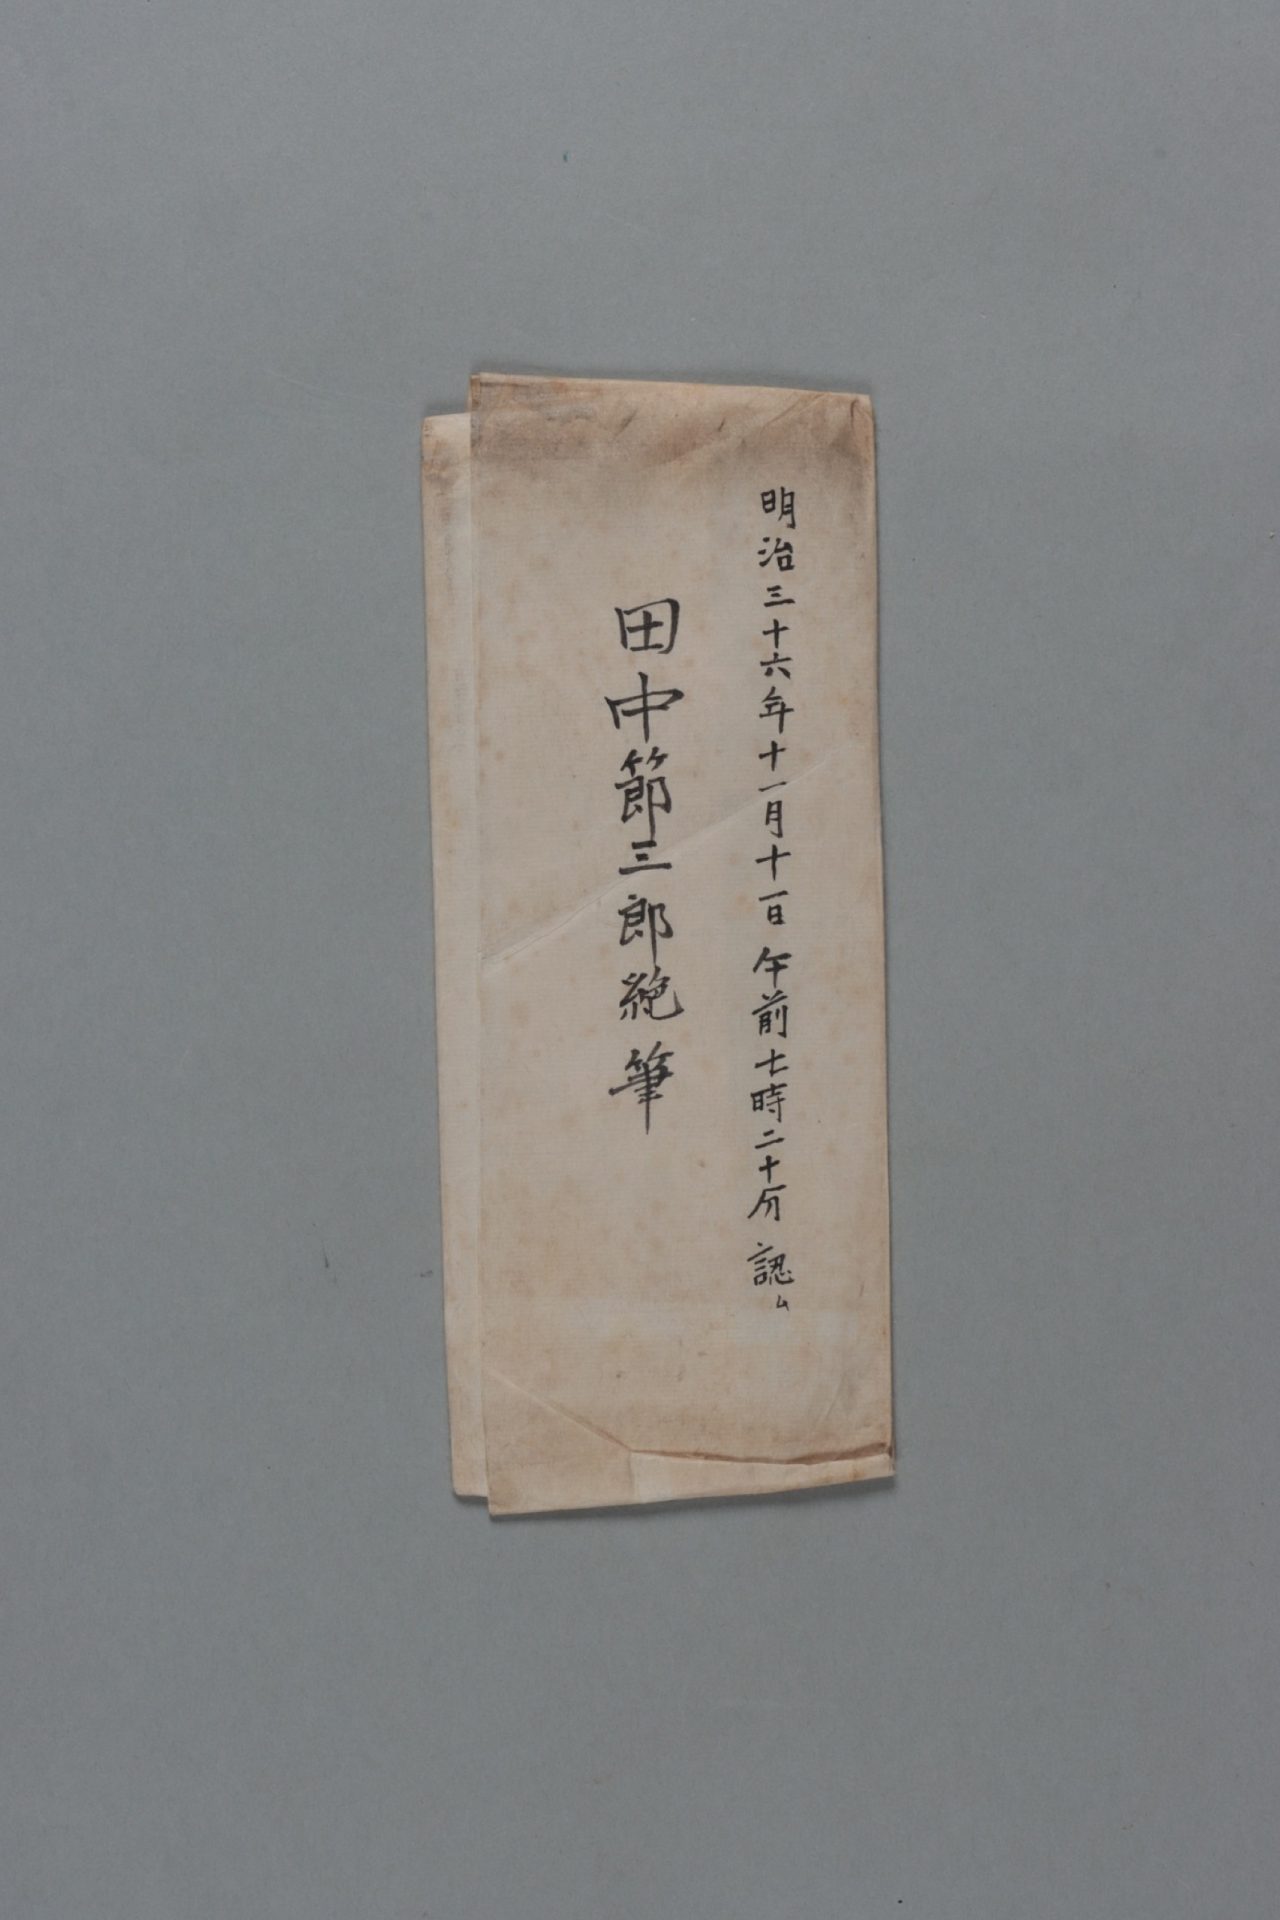 明治三十六年十一月十一日午前七時二十分認ム
田中節三郎絶筆